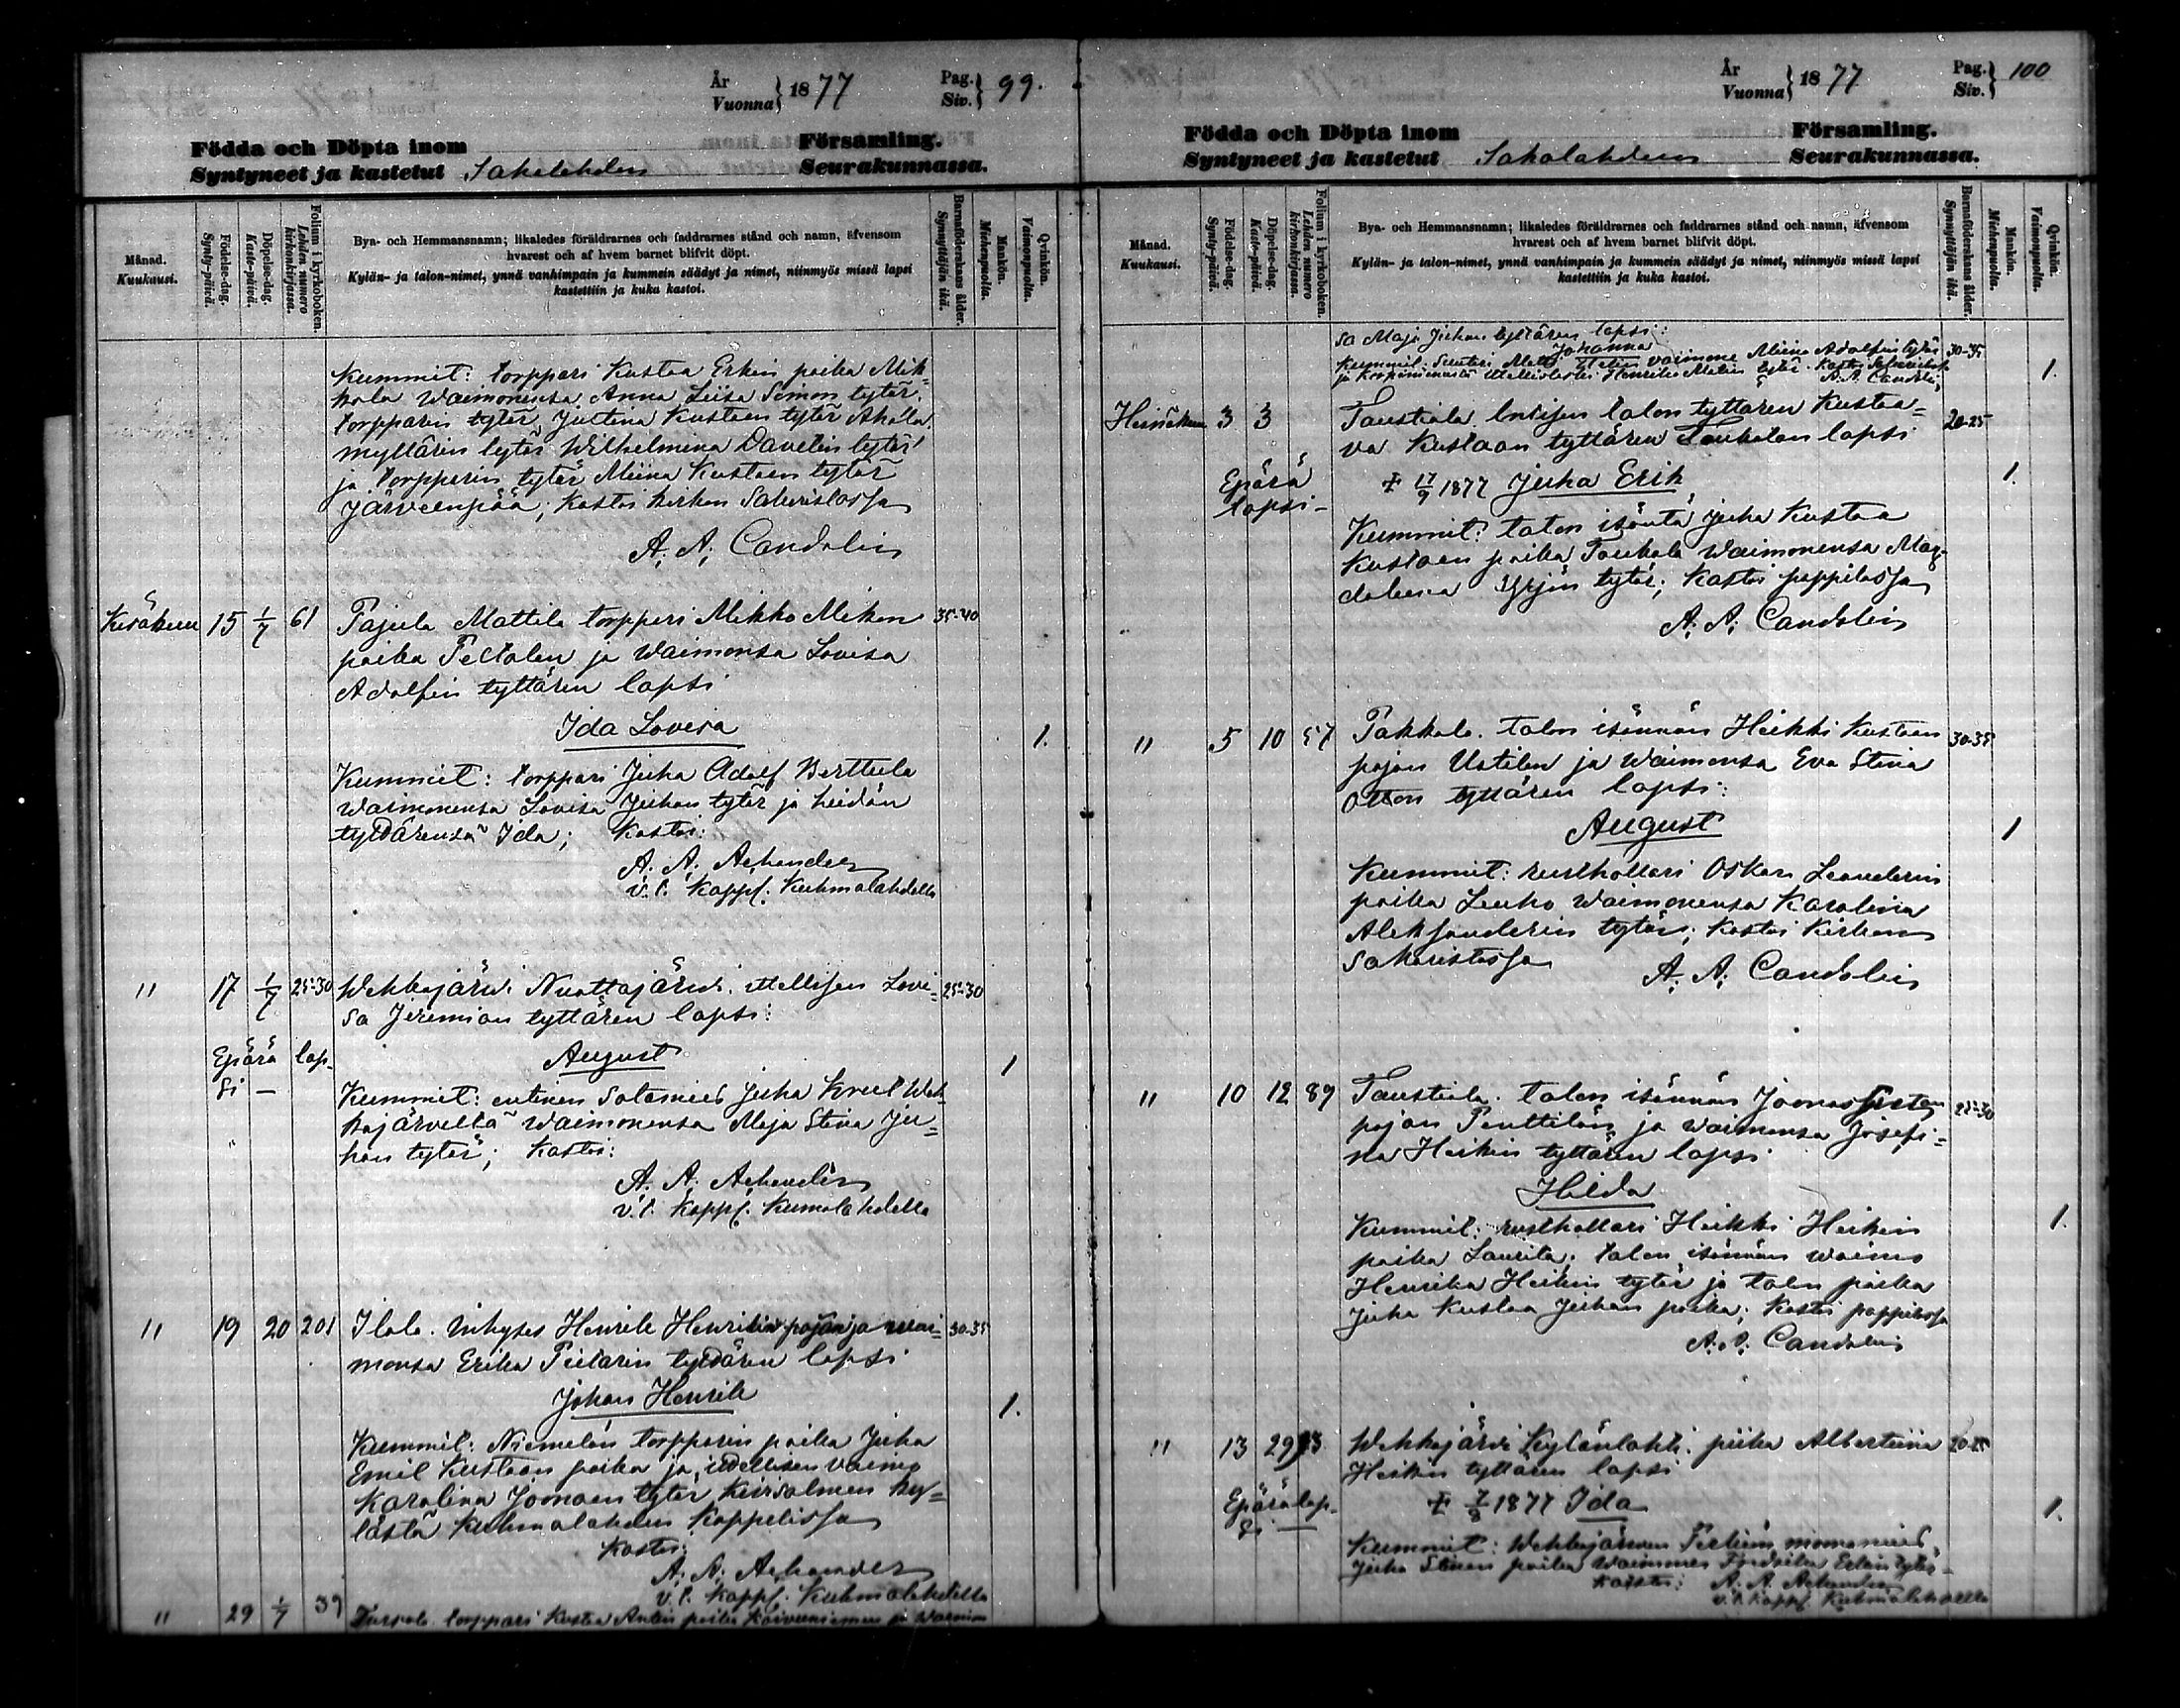 År
Vuonna } 1877
Pag.
Siv. } 99.
Födda och Döpta inom Församling.
Syntyneet ja kastetut Sahalahden Seurakunnassa.
Månad.
Kuukausi.
Födelse-dag.
Synty-päivä.
Döpelse-dag.
Kaste-päivä.
Folium i kyrkoboken.
Lehden numero
kirkonkirjassa.
Bya- och Hemmansnamn; likaledes föräldrarnes och faddrarnes stånd och namn, äfvensom
hvarest och af hvem barnet blifvit döpt.
Kylän- ja talon-nimet, ynnä vanhimpain ja kummein säädyt ja nimet, niinmyös missä lapsi
kastettiin ja kuka kastoi.
Barnaföderskans ålder.
Synnyttäjän ikä.
Mankön.
Miehenpuolta.
Qvinkön.
Vaimonpuolta.
Kummit: torppari Kustaa Erkin poika Mik-
kola Waimonensa Anna Liisa Simon tytär,
torpparin tytär Justina Kustaan tytär Ahola,
myllärin tytär Wilhelmina Davetin tytär
ja torpparin tytär Miina Kustaan tytär
Järvenpää; Kastoi kirkon Sakaristossa
A. A. Candolin
Kesäkuu 15 1/7 61 Pajula Mattila torppari Mikko Mikon 35-40
poika Peltolan ja Waimonsa Lovisa
Adolfin tyttären lapsi
Ida Lovisa 1.
Kummit: torppari Juha Adolf Berttula
Waimonensa Lovisa Juhan tytär ja heidän
tyttärensä Ida; Kastoi:
A. A. Achander
v. t. Kappl. Kuhmalahdella
" 17 1/7 25-30 Wehkajärvi Nuottajärvi ittellisen Lovi- 25-30
sa Jeremian tyttären lapsi:
Epärä lap-
si —
August 1
Kummit: entinen Sotamies Juha Kreel Weh-
kajärveltä waimonensa Maja Stina Ju-
han tytär; Kastoi:
A. A. Achander
v. t. Kappl. Kumalahdella
" 19 20 201 Ilola. Inhyses Henrik Henrikin pojan ja wai- 30-35
monsa Erika Pietarin tyttären lapsi
Johan Henrik 1.
Kummit: Niemelän torpparin poika Juha
Emil Kustaan poika ja ittellisen vaimo
Karolina Joonaan tytär Keisalmen ky-
lästä Kuhmalahden Kappelissa
Kastoi:
A. A. Achander
v. t. Kappl. Kuhmalahdella
" 29 1/7 39 torppari Kustaa Antin poika Koivuniemen ja Waimon
År
Vuonna } 1877
Pag.
Siv. } 100
Födda och Döpta inom Församling.
Syntyneet ja kastetut Sahalahden Seurakunnassa.
Månad.
Kuukausi.
Födelse-dag.
Synty-päivä.
Döpelse-dag.
Kaste-päivä.
Folium i kyrkoboken.
Lehden numero
kirkonkirjassa.
Bya- och Hemmansnamn; likaledes föräldrarnes och faddrarnes stånd och namn, äfvensom
hvarest och af hvem barnet blifvit döpt.
Kylän- ja talon-nimet, ynnä vanhimpain ja kummein säädyt ja nimet, niinmyös missä lapsi
kastettiin ja kuka kastoi.
Barnaföderskans ålder.
Synnyttäjän ikä.
Mankön.
Miehenpuolta.
Qvinkön.
Vaimonpuolta.
sa Maja Juhan tyttären lapsi: 30-35
Johanna 1.
Kummit: Suutari Matts vaimone Miina Adolfin tytär
ja ittellistär Henrika Matin tytär. Kastoi
A. A. Candolin
Heinäkuu 3 3 Taustiala entisen talon tyttären Kustaa- 20-25
va Kustaan tyttären Toukolan lapsi
Epärä
lapsi-
✝ 17/9 1877 Juha Erik 1.
Kummit: talon isäntä Juha Kustaa
Kustaan poika Toukola Waimonensa Mag-
dalena Yrjön tytär; Kastoi pappilassa
A. A. Candolin
" 5 10 57 Pakkala. talon isännän Heikki Kustaan 30-35
pojan Uotilan ja Waimonsa Eva Stina
Otton tyttären lapsi:
August 1
Kummit: rusthollari Oskar Leanderin
poika Lenko Waimonensa Karolina
Aleksanderin tytär; Kastoi Kirkon
Sakaristossa A. A. Candolin
" 10 12 89 Taustiala. talon isännän Joonas Kustaan 25-30
pojan Penttilän ja Waimonsa Josefi-
na Heikin tyttären lapsi
Hilda 1.
Kummit: rusthollari Heikki Heikin
poika Laurila, talon isännän waimo
Henrika Heikin tytär ja talon poika
Juha Kustaa Juhan poika; Kastoi pappilassa
A. A. Candolin
" 13 29 Wehkajärvi Kylänlahti. piika Albertiina 20-25
Heikin tyttären lapsi
Epärä lap-
si —
✝ 7/8 1877 Ida 1.
Kummit: Wehkajärven
Juha poika Waimonen Erkin tytär
Kastoi: A. A. Achander
v. t. Kappl. Kuhmalahdella